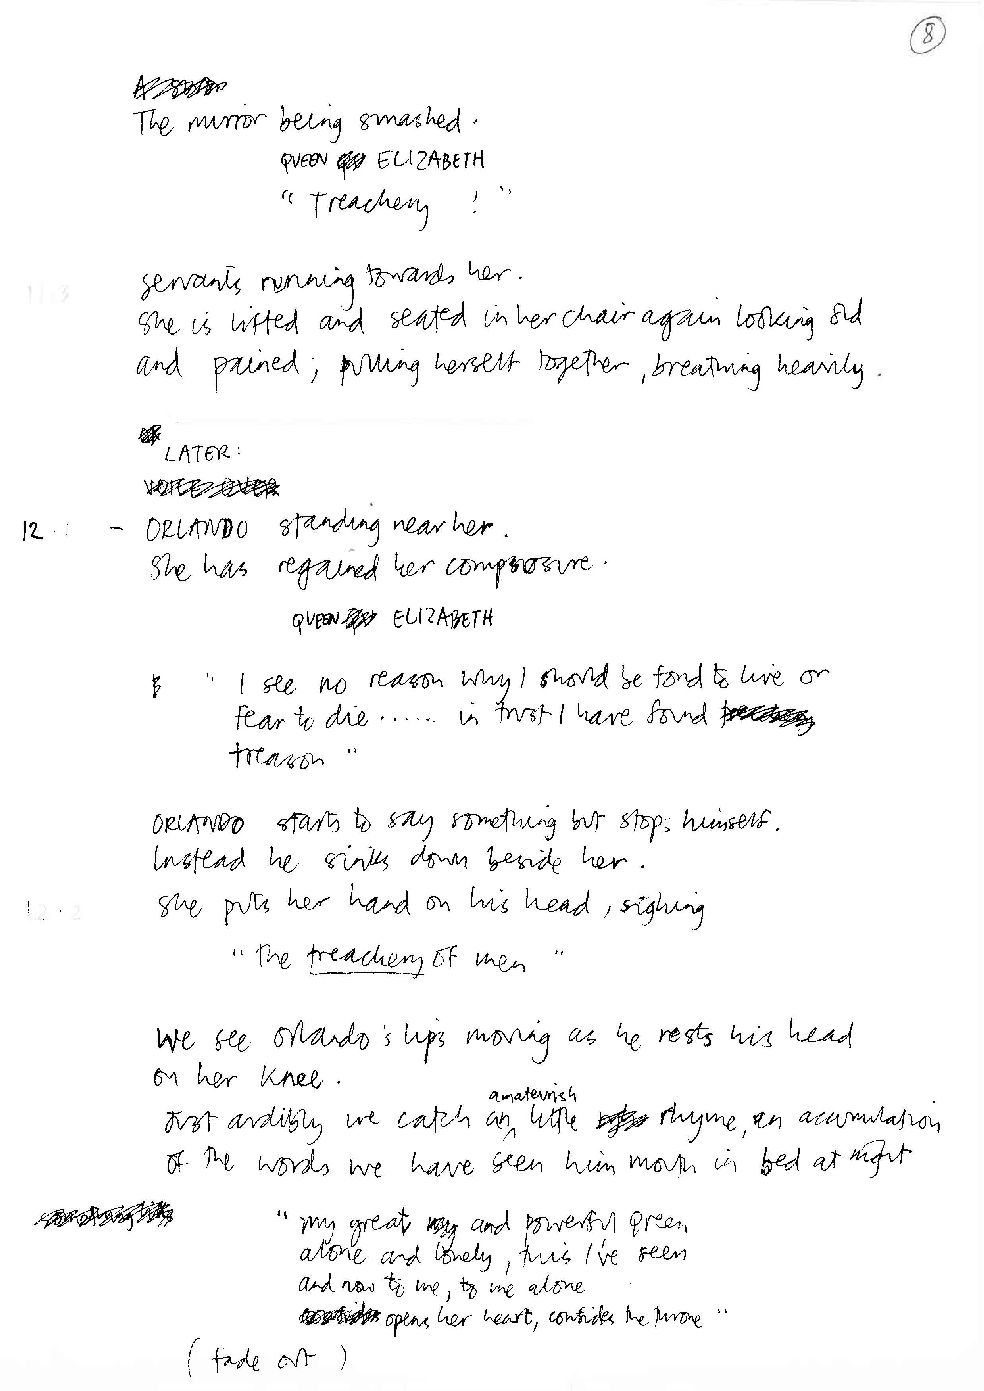 8
The mirror being smashed.
QUEEN ELIZABETH
" Treachery ! "
11.3
servants running towards her.
She is lifted and seated in her chair again looking old
and pained; pulling herself together, breathing heavily.
LATER:
12.1 - ORLANDO standing near her.
She has regained her composure.
QUEEN ELIZABETH
" I see no reason why I should be fond to live or
fear to die ...... in trust I have found
treason "
ORLANDO starts to say something but stops himself.
Instead he sinks down beside her.
12.2 She puts her hand on his head, sighing
" The treachery of men "
We see Orlando's lips moving as he rests his head
on her knee.
amateurish
Just audibly we catch an little rhyme, an accumulation
of the words we have seen him mouth in bed at night
" my great and powerful Queen
alone and lonely, this I've seen
and now to me, to me alone
opens her heart, confides the throne "
( fade out )